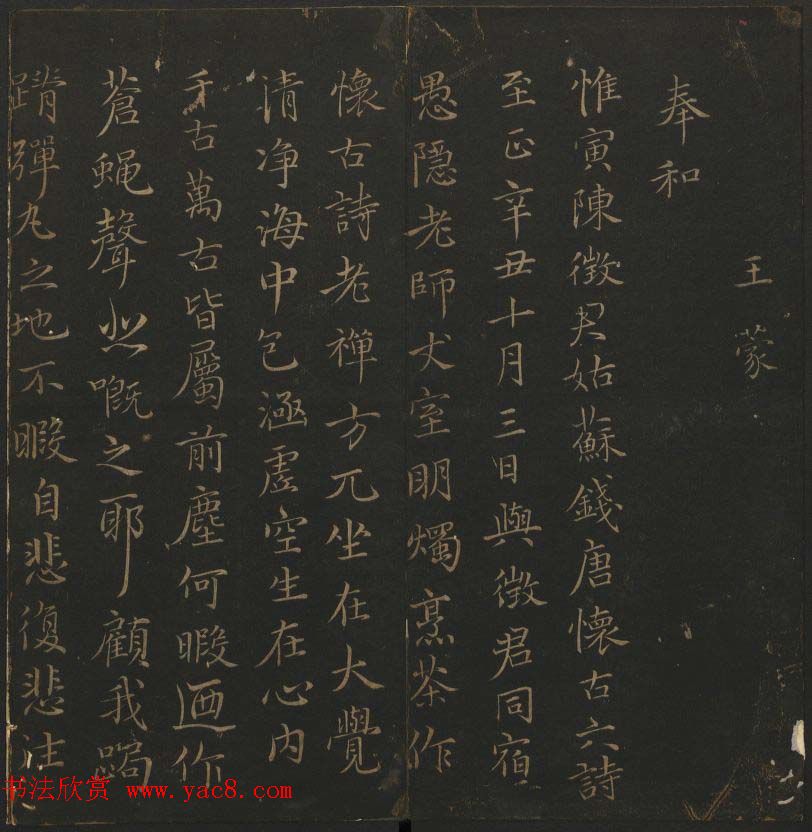 王蒙
奉和
惟寅陳徵君姑蘇錢唐懷古六詩
至正辛丑十月三日與徵君同宿
愚隱老師丈室明燭烹茶作
懷古詩老禪方兀坐在大覺
清净海中包涵虛空生在心内
千古萬古皆屬前塵何暇迺作
蒼蝇聲悲嘅之耶顧我跼
蹐彈丸之地不暇自悲復悲往
书法欣赏 www.yac8.com